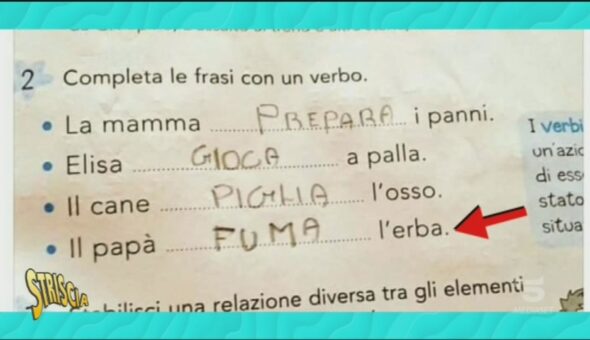 2 Completa le frasi con un verbo.
• La mamma PREPARA i panni.
• Elisa GIOCA a palla.
• Il cane PIGLIA l'osso.
• Il papà FUMA l'erba.
I verbi
un'azio
di esse
stato
situa
STRISCIA
bilisci una relazione diversa tra gli elementi
5
MEDIASET